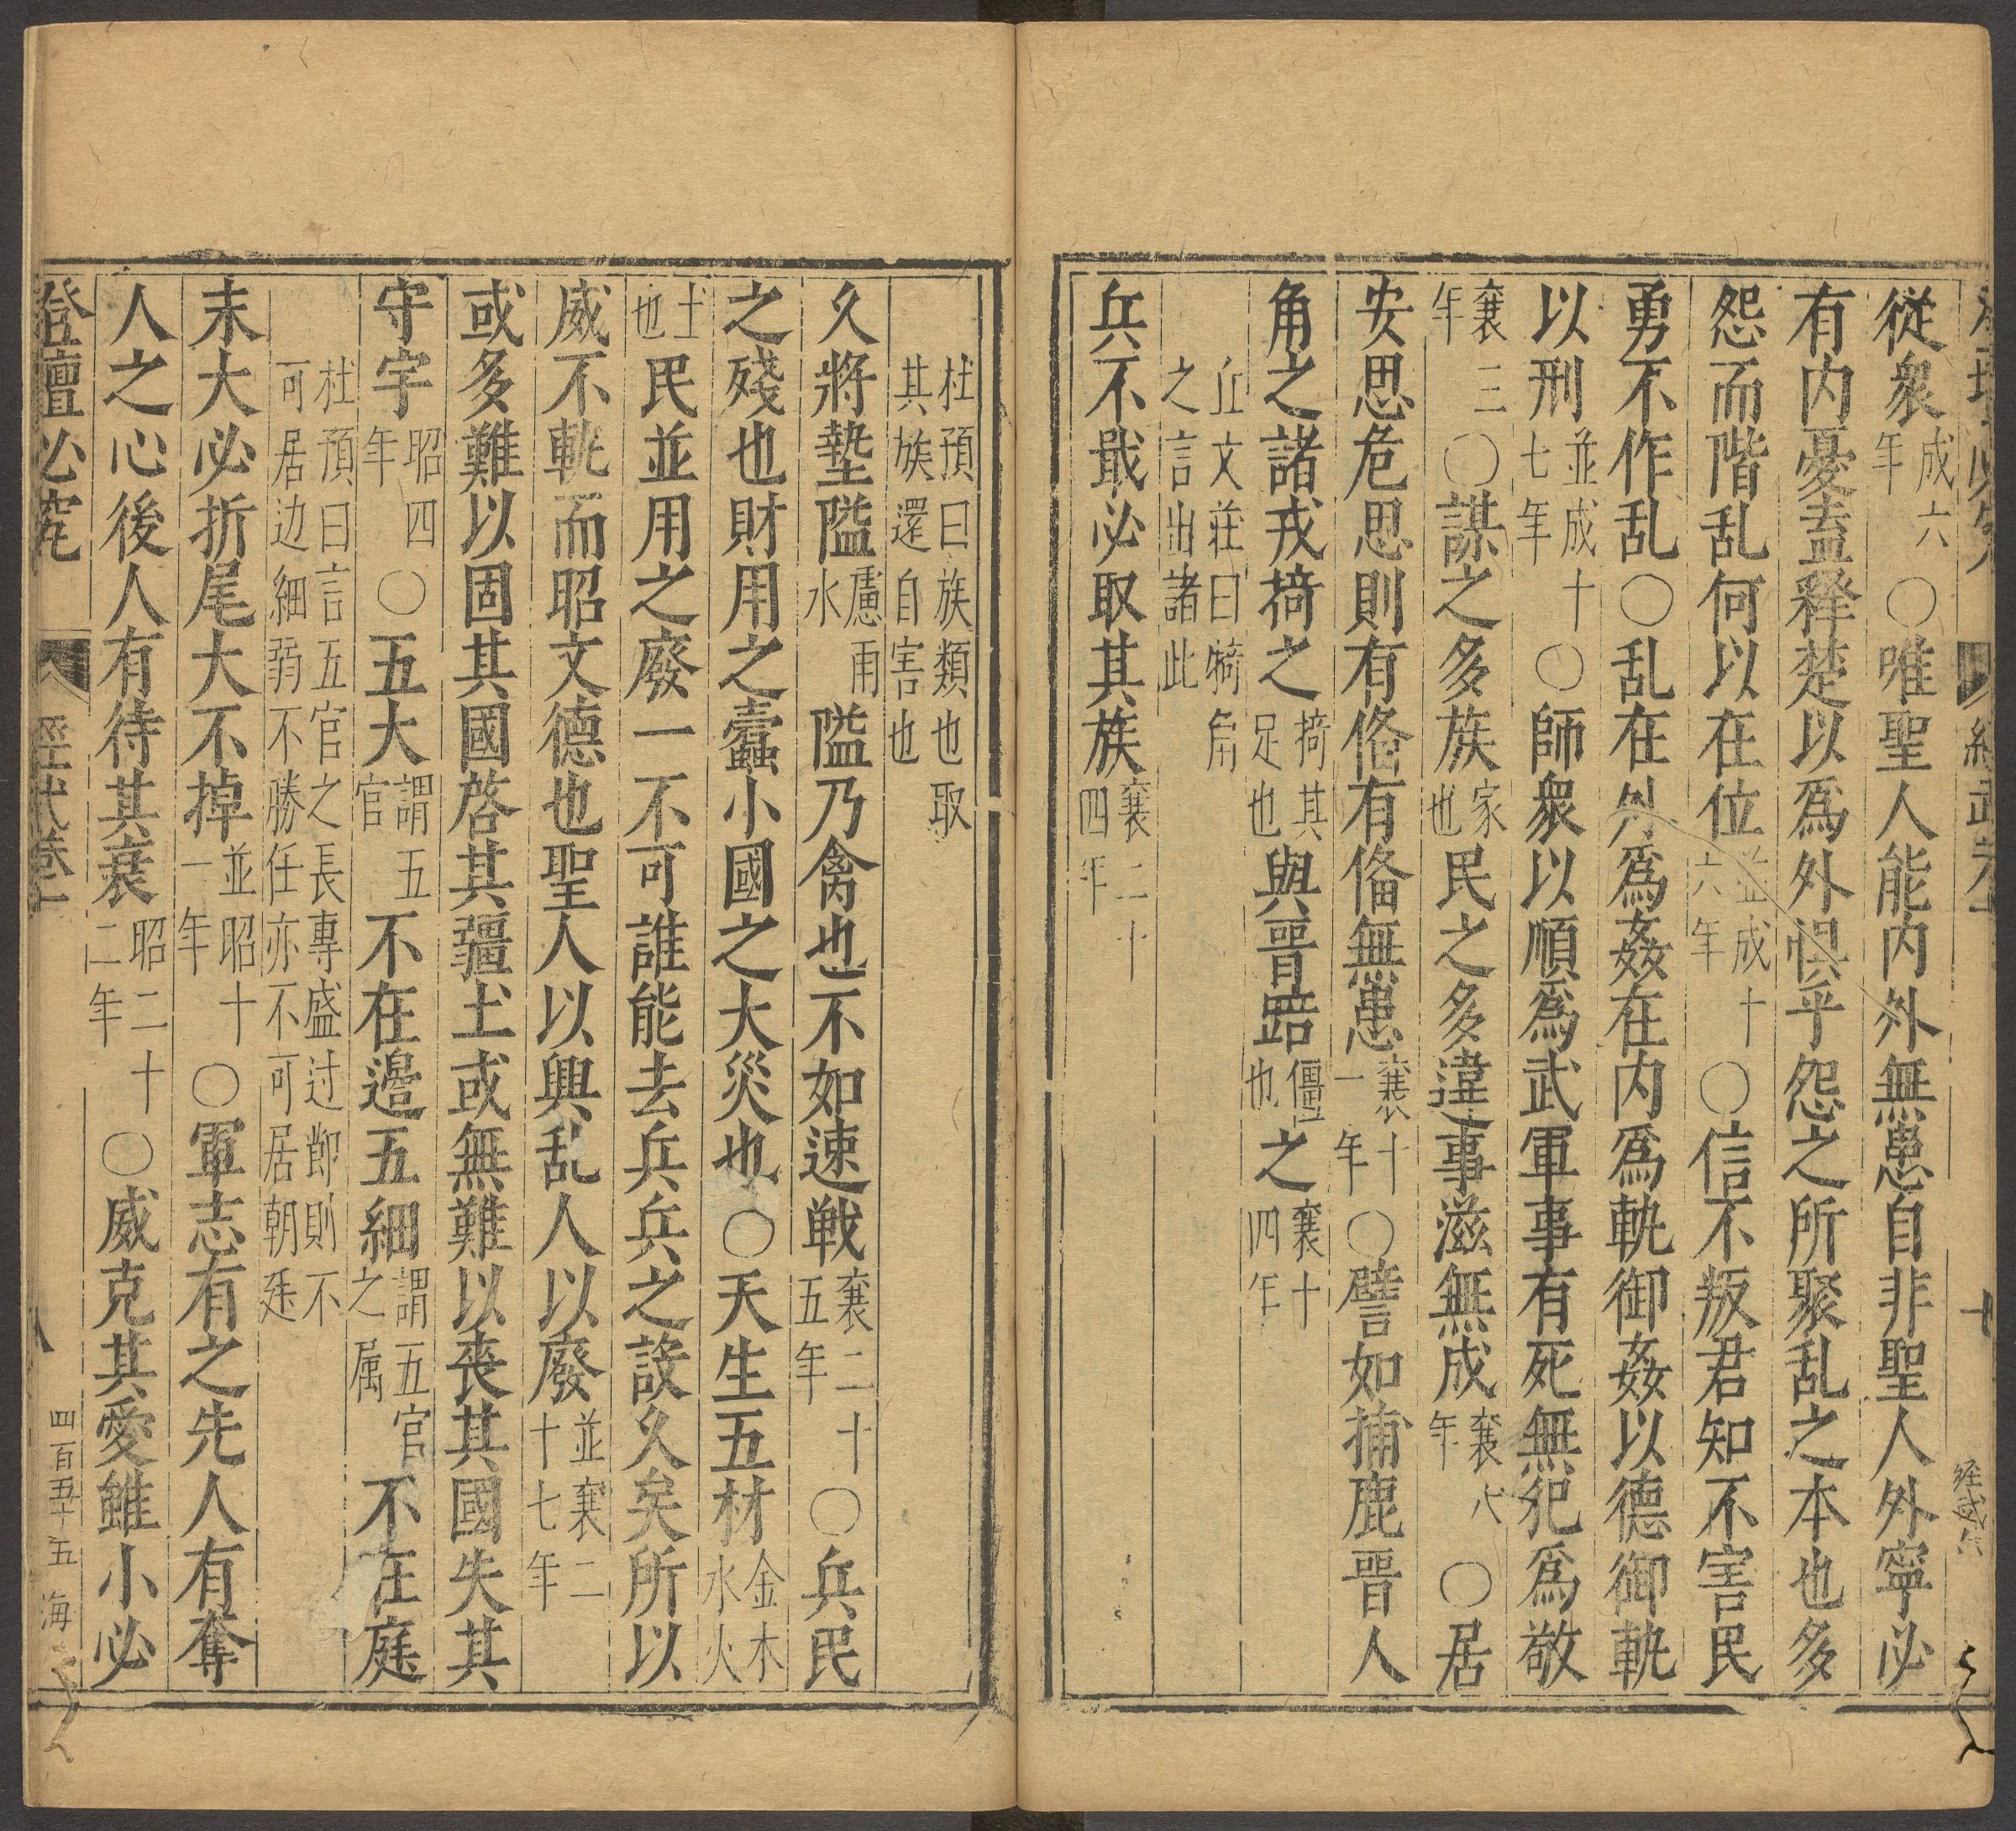 從衆成六年○唯聖人能内外無患自非聖人外寧必
有内憂盍释楚以爲外惧乎怨之所聚乱之本也多
怨而階乱何以在位並成十六年○信不叛君知不害民
勇不作乱○乱在外爲姦在内爲軌御姦以德御軌
以刑並成十七年○師衆以順爲武軍事有死無犯爲敬
襄三年○謀之多族家也民之多違事滋無成襄八年○居
安思危思則有俻有俻無患襄十一年○譬如捕鹿晋人
角之諸戎掎之掎其足也與晋踣僵也之襄十四年
丘文莊曰犄角
之言出諸此
兵不戢必取其族襄二十四年
杜預曰族類也取
其族還自害也
久將墊隘慮雨水隘乃禽也不如速戰襄二十五年○兵民
之殘也財用之蠹小國之大災也○天生五材金木水火
土也民並用之廢一不可誰能去兵兵之設久矣所以
威不軌而昭文德也聖人以興乱人以廢並襄二十七年
或多難以固其國啓其疆土或無難以喪其國失其
守宇昭四年○五大謂五官不在邊五細謂五官之属不在庭
杜預曰言五官之長專盛过節則不
可居边細弱不勝任亦不可居朝廷
末大必折尾大不掉並昭十一年○軍志有之先人有奪
人之心後人有待其衰昭二十二年○威克其愛雖小必
登壇必究 經武卷十 八 四百五十五 海